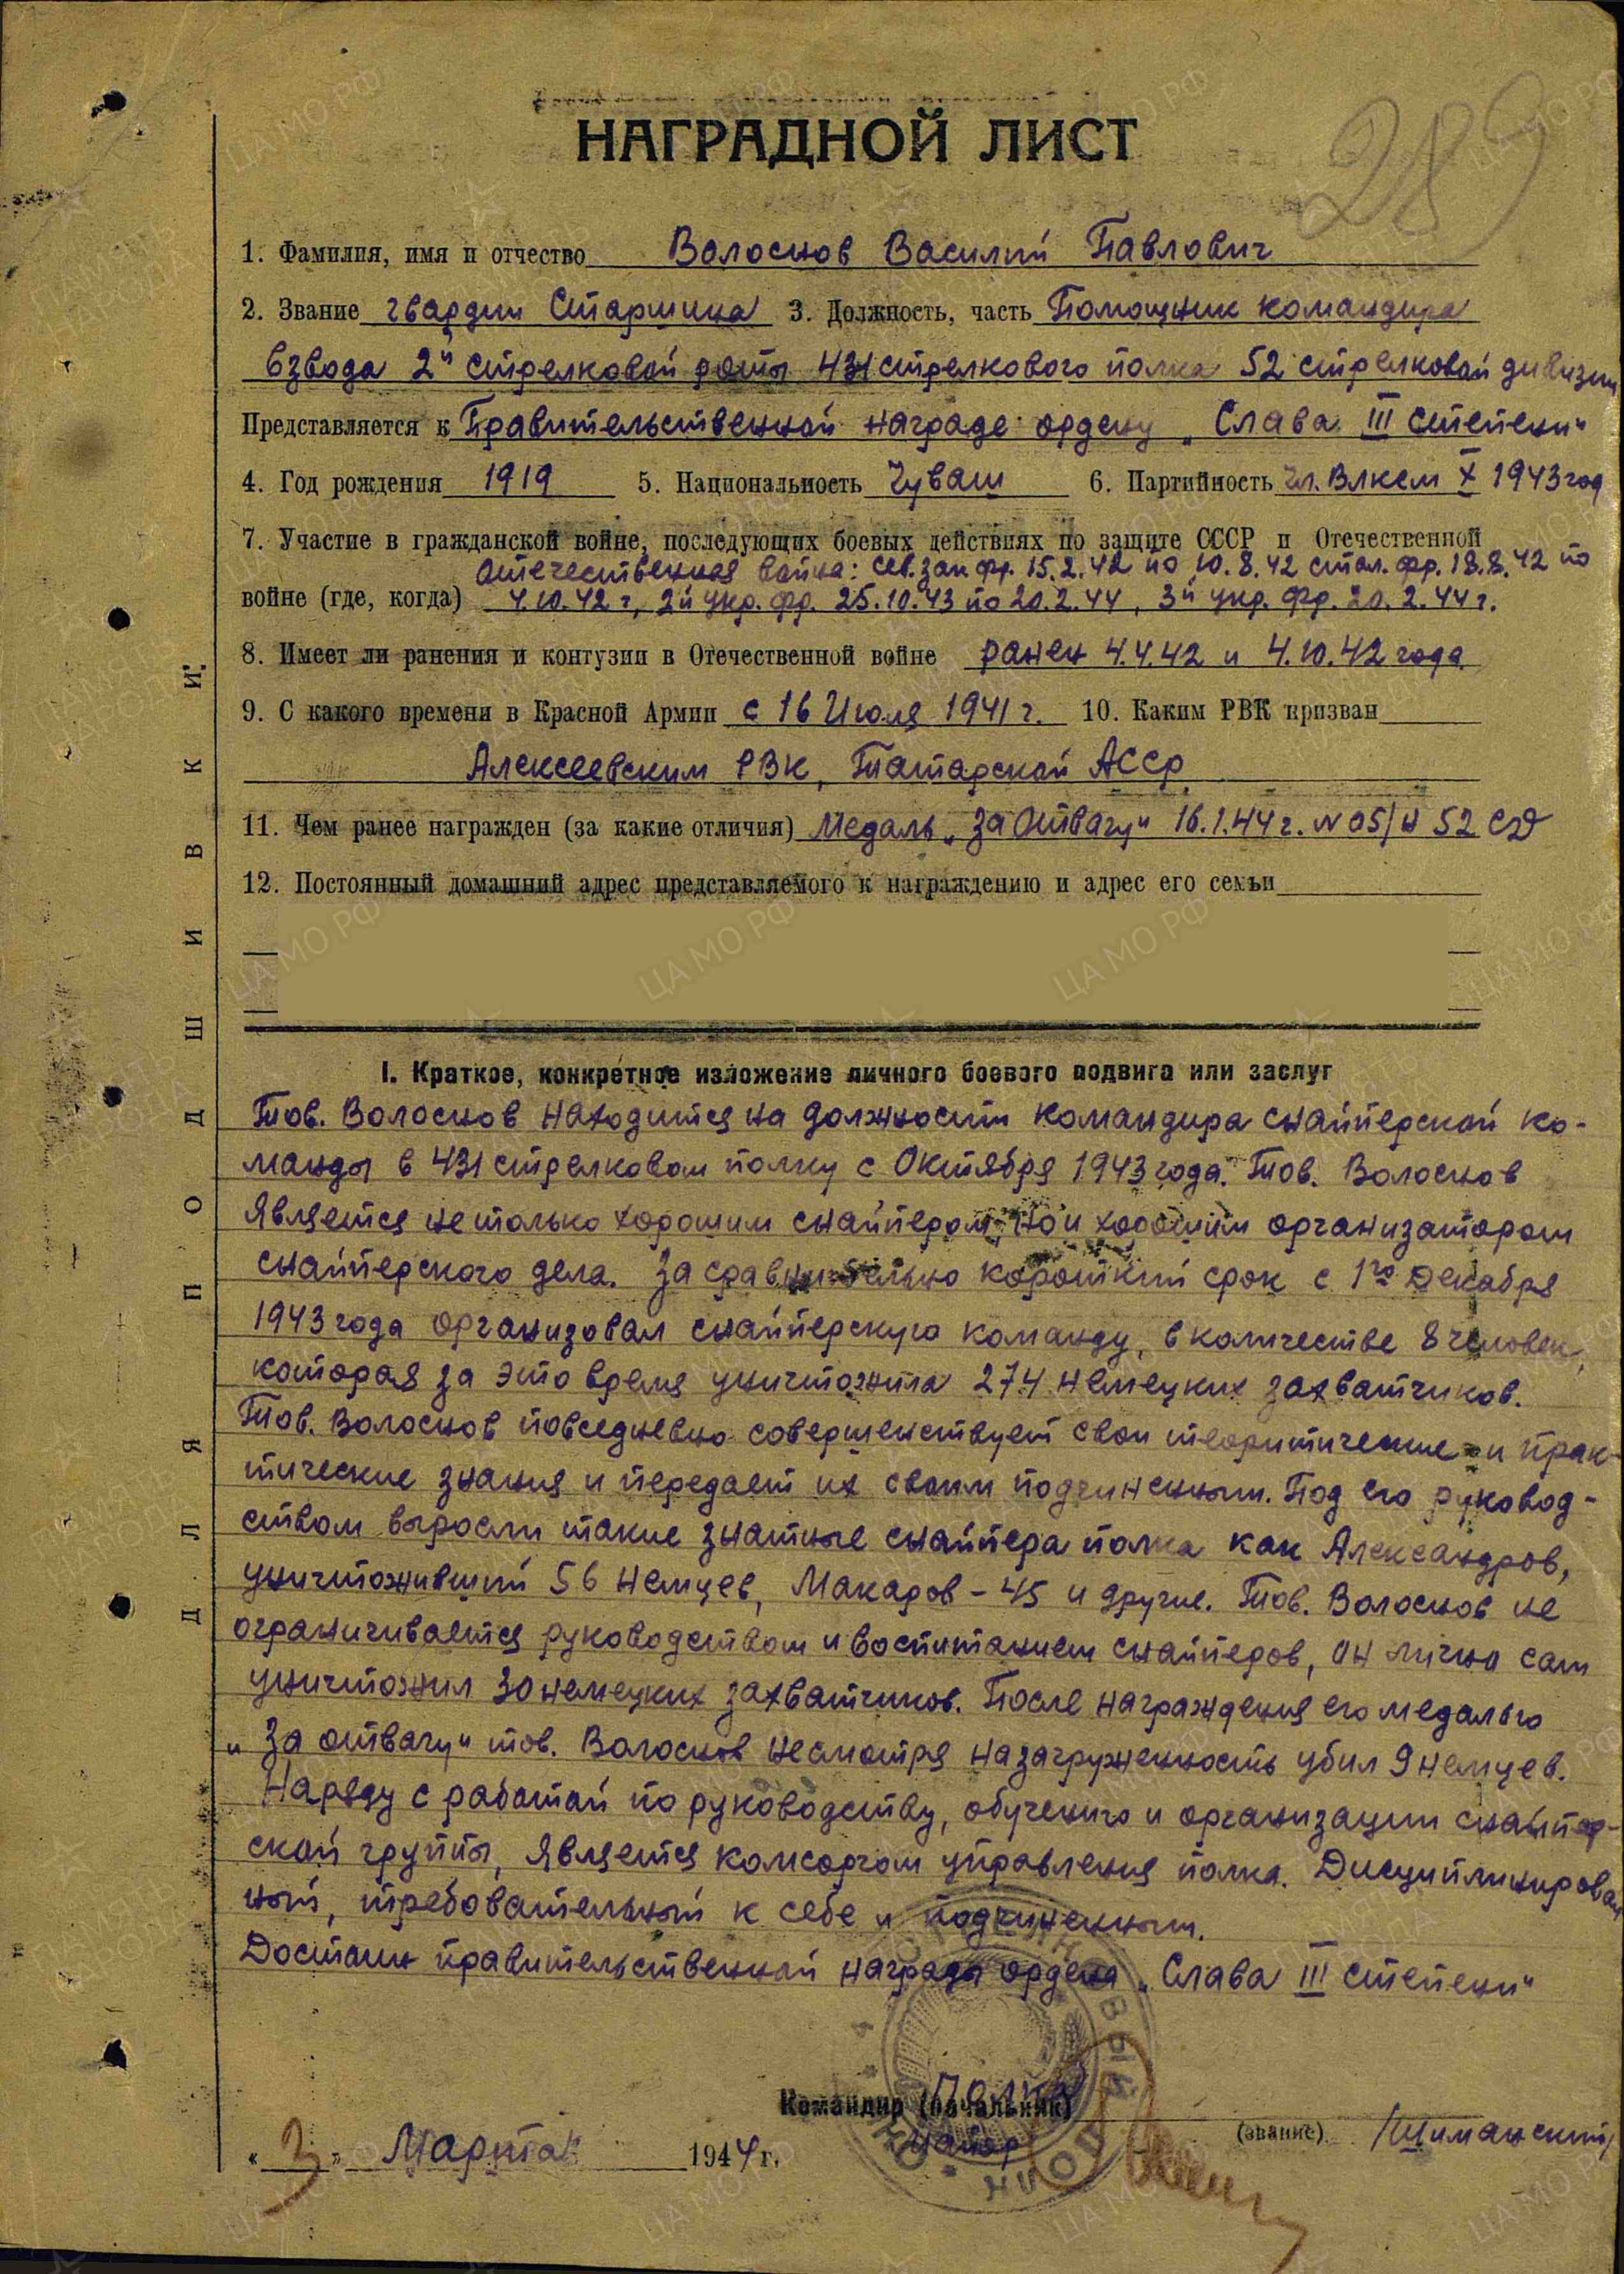 289
НАГРАДНОЙ ЛИСТ
1. Фамилия, имя и отчество Волоснов Василий Павлович
2. Звание гвардии Старшина 3. Должность, часть Помощник командира
взвода 2й стрелковой роты 431 стрелкового полка 52 стрелковой дивизии
Представляется к Правительственной награде ордену „Слава III степени“
4. Год рождения 1919 5. Национальность Чуваш 6. Партийность Чл. Влксм X 1943 год
7. Участие в гражданской войне, последующих боевых действиях по защите СССР и Отечественной
Отечественная война: Сев. зап. фр. 15.2.42 по 10.8.42 стал. фр. 18.8.42 по
войне (где, когда) 4.10.42 г, 2й укр. фр. 25.10.43 по 20.2.44, 3й укр. фр. 20.2.44 г.
8. Имеет ли ранения и контузии в Отечественной войне ранен 4.4.42 и 4.10.42 года
9. С какого времени в Красной Армии с 16 Июля 1941 г. 10. Каким РВК призван
Алексеевским РВК, Татарской АССР
11. Чем ранее награжден (за какие отличия) Медаль „За Отвагу“ 16.1.44 г. N 05/н 52 СД
12. Постоянный домашний адрес представляемого к награждению и адрес его семьи
ДЛЯ ПОДШИВКИ
I. Краткое, конкретное изложение личного боевого подвига или заслуг
Тов. Волоснов находится на должности командира снайперской ко-
манды в 431 стрелковом полку с Октября 1943 года. Тов. Волоснов
является не только хорошим снайпером, но и хорошим организатором
снайперского дела. За сравнительно короткий срок с 1го Декабря
1943 года организовал снайперскую команду, в количестве 8 человек,
которая за это время уничтожила 274 немецких захватчиков.
Тов. Волоснов повседневно совершенствует свои теоритические и прак-
тические знания и передает их своим подчиненным. Под его руковод-
ством выросли такие знатные снайпера полка как Александров,
уничтоживший 56 немцев, Макаров - 45 и другие. Тов. Волоснов не
ограничивается руководством и воспитанием снайперов, он лично сам
уничтожил 30 немецких захватчиков. После награждения его медалью
„За отвагу“ тов. Волоснов несмотря на загруженность убил 9 немцев.
Наряду с работой по руководству, обучению и организации снайпер-
ской группы, является комсоргом управления полка. Дисциплинирован
ный, требовательный к себе и подчиненным.
Достоин правительственной награды ордена „Слава III степени“
Командир (начальник) Полка
Майор (звание) /Шиманский/
«3» Марта 1944 г.